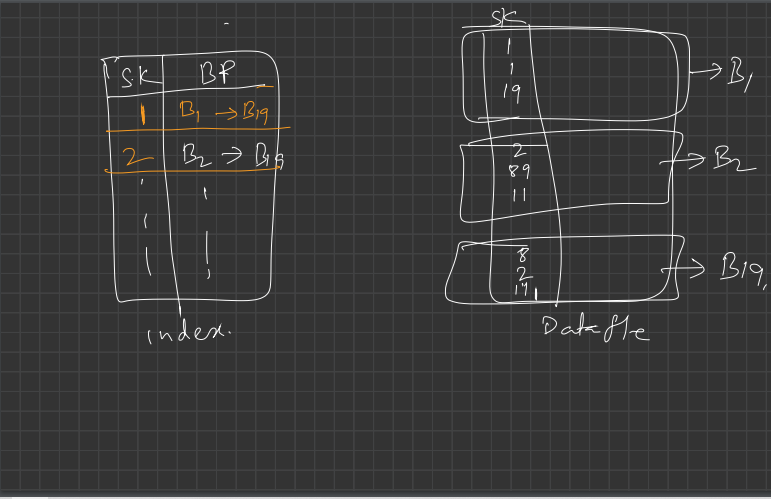 SK BP
1 B1 → B19
2 B2 → B19
index.
SK
1
1
19
→ B1
2
89
11
→ B2
8
2
→ B19
Datafile